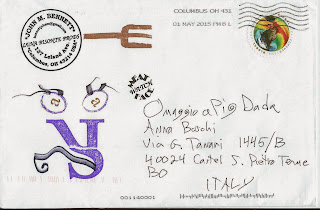 JOHN M. BENNETT
LUNA BISONTE PRODS
137 Leland Ave
Columbus, OH 43214 USA
COLUMBUS OH 431
01 MAY 2015 PM 8 L
MEAT
WATCH
FACE
Omaggio a Pig Dada
Anna Boschi
Via G. Tanari 1445/B
40024 Castel S. Pietro Terme
BO
ITALY
001140001